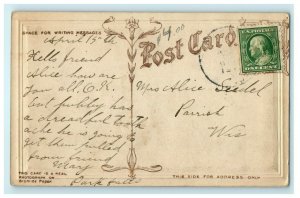 SPACE FOR WRITING MESSAGES
April 15th
Hello friend
Alice how are
you all. O.K.
but fubby has
a dreadful tooth
ache he is going to
get them pulled
from friend
Mary
Park Falls
THIS CARD IS A REAL
PHOTOGRAPH ON
PAPER
Post Card
4.00
U.S. POSTAGE
ONE CENT
Mrs Alice Seidel
Parish
Wis
THIS SIDE FOR ADDRESS ONLY